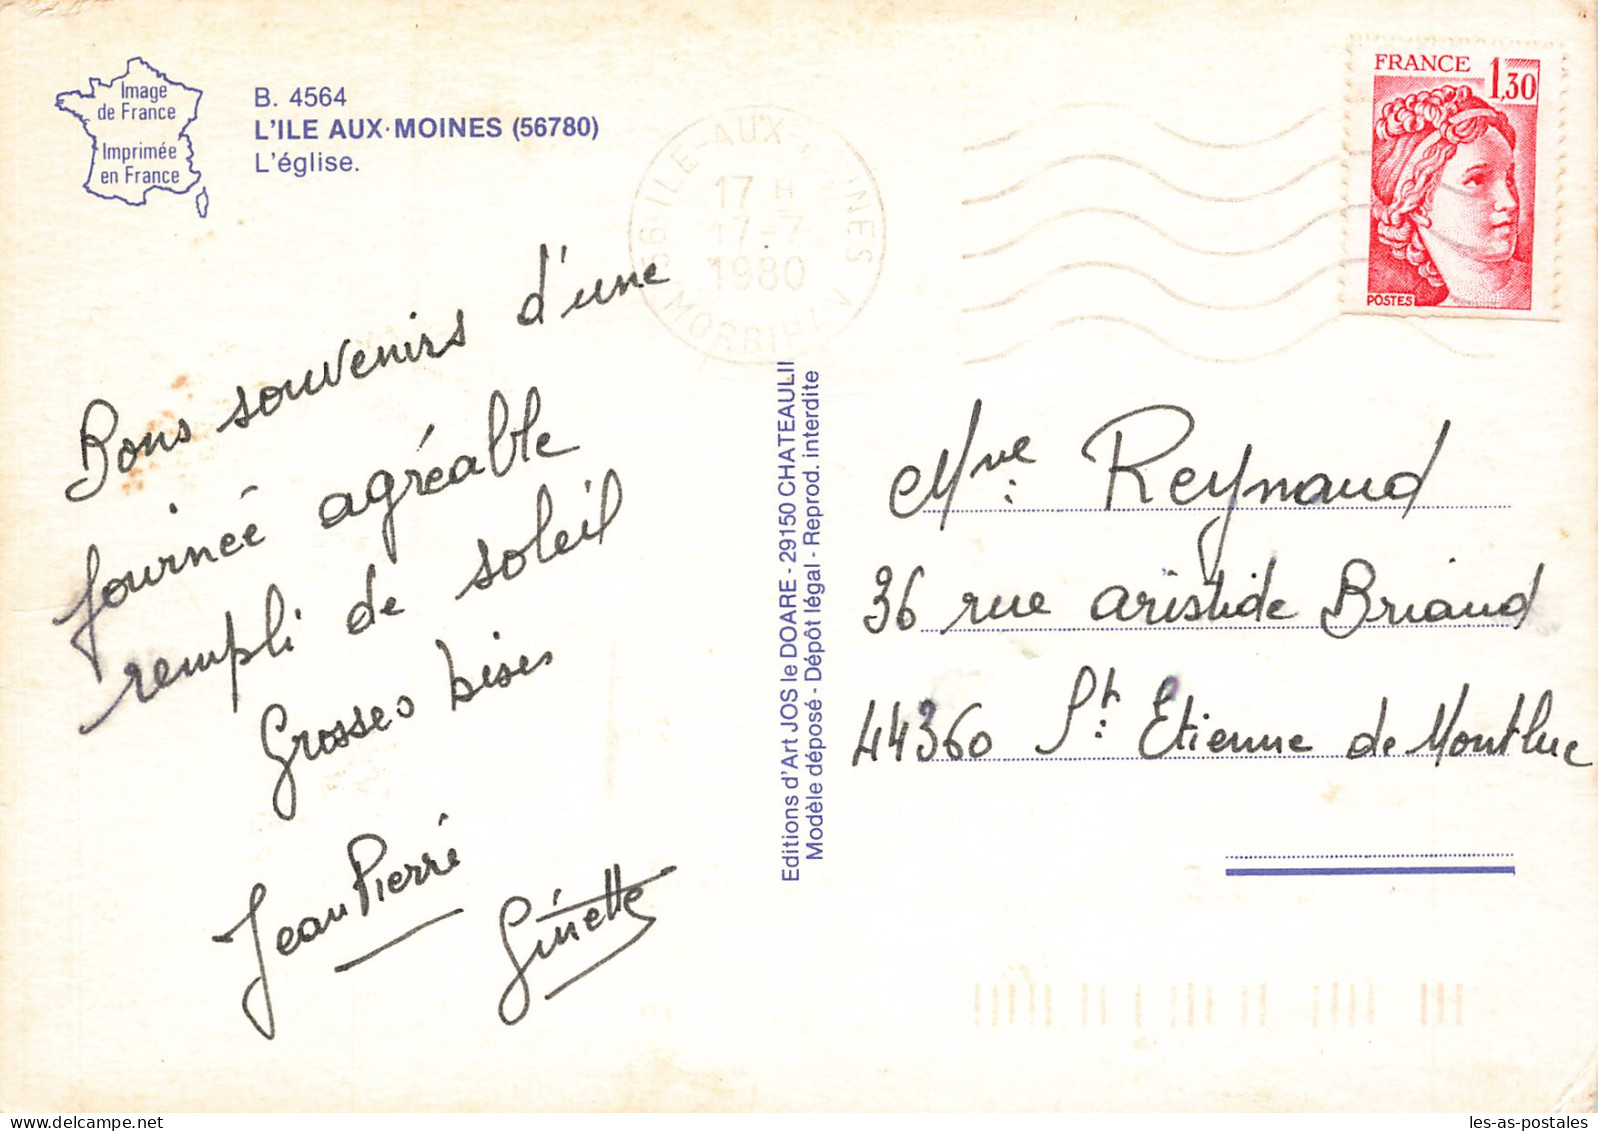 Image
de France
Imprimée
en France
B. 4564
L'ILE AUX·MOINES (56780)
L'église.
56 ILE-AUX-MOINES
17 H
17-7
1980
MORBIHAN
FRANCE 1,30
POSTES
Bons souvenirs d'une
journée agréable
rempli de soleil
Grosses bises
Jean Pierré
Ginette
Editions d'Art JOS le DOARE - 29150 CHATEAULIN
Modèle déposé - Dépôt légal - Reprod. interdite
Mve: Reynaud
36 rue aristide Briand
44360 St: Etienne de Montluc
les-as-postales